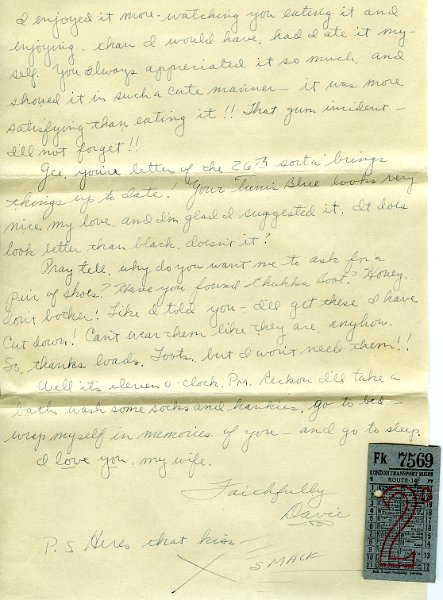 I enjoyed it more - watching you eating it and
enjoying - than I would have, had I ate it my-
self. You always appreciated it so much, and
showed it in such a cute manner - it was more
satisfying than eating it!! That gum incident -
I'll not forget!!
Gee, you're letter of the 26th sorta' brings
things up to date! Your Tunis Blue looks very
nice, my love, and I'm glad I suggested it. It does
look better than black, doesn't it?
Pray tell, why do you want me to ask for a
pair of shoes? Have you found Chukka Boot? Honey..
don't bother! Like I told you - I'll get these I have
cut down! Can't wear them like they are, anyhow.
So, thanks loads, Toots, but I won't need them!!
Well it's eleven o'clock, P.m. Reckon I'll take a
bath, wash some socks and hankies, go to bed -
wrap myself in memories of you - and go to sleep.
I love you, my wife.
Faithfully
Davie
P.S Heres that kiss -
X SMACK
Fk 7569
LONDON TRANSPORT BUSES
ROUTE 14
2D